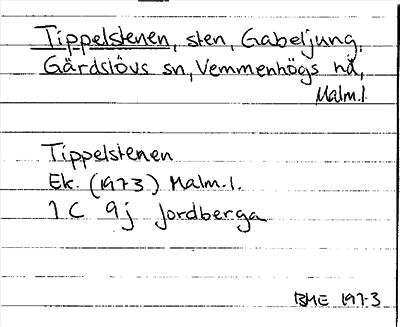 Tippelstenen, sten, Gabeljung,
Gärdslövs sn, Vemmenhögs hd,
Malm.l.
Tippelstenen
Ek. (1973) Malm.l.
1C 9j Jordberga
BME 1973